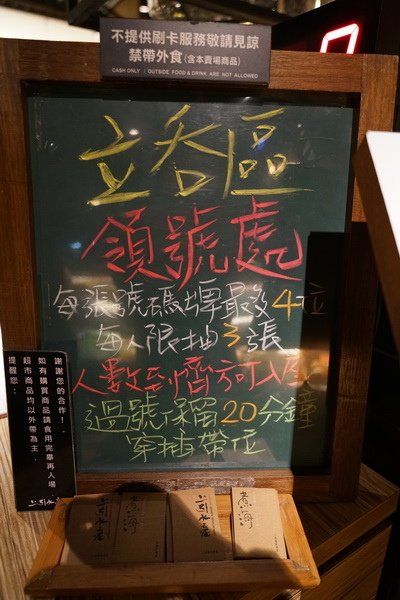 不提供刷卡服務敬請見諒
禁帶外食(含本賣場商品)
CASH ONLY / OUTSIDE FOOD & DRINK ARE NOT ALLOWED
立吞區
領號處
每張號碼牌最多4位
每人限抽3張
人數到齊方可入座
過號保留20分鐘
穿插帶位
謝謝您的合作！
如有購買商品請食用完畢再入場
超市商品均以外帶為主．
提醒您：
上引水產
上引水產
煮海
上引水產
煮海